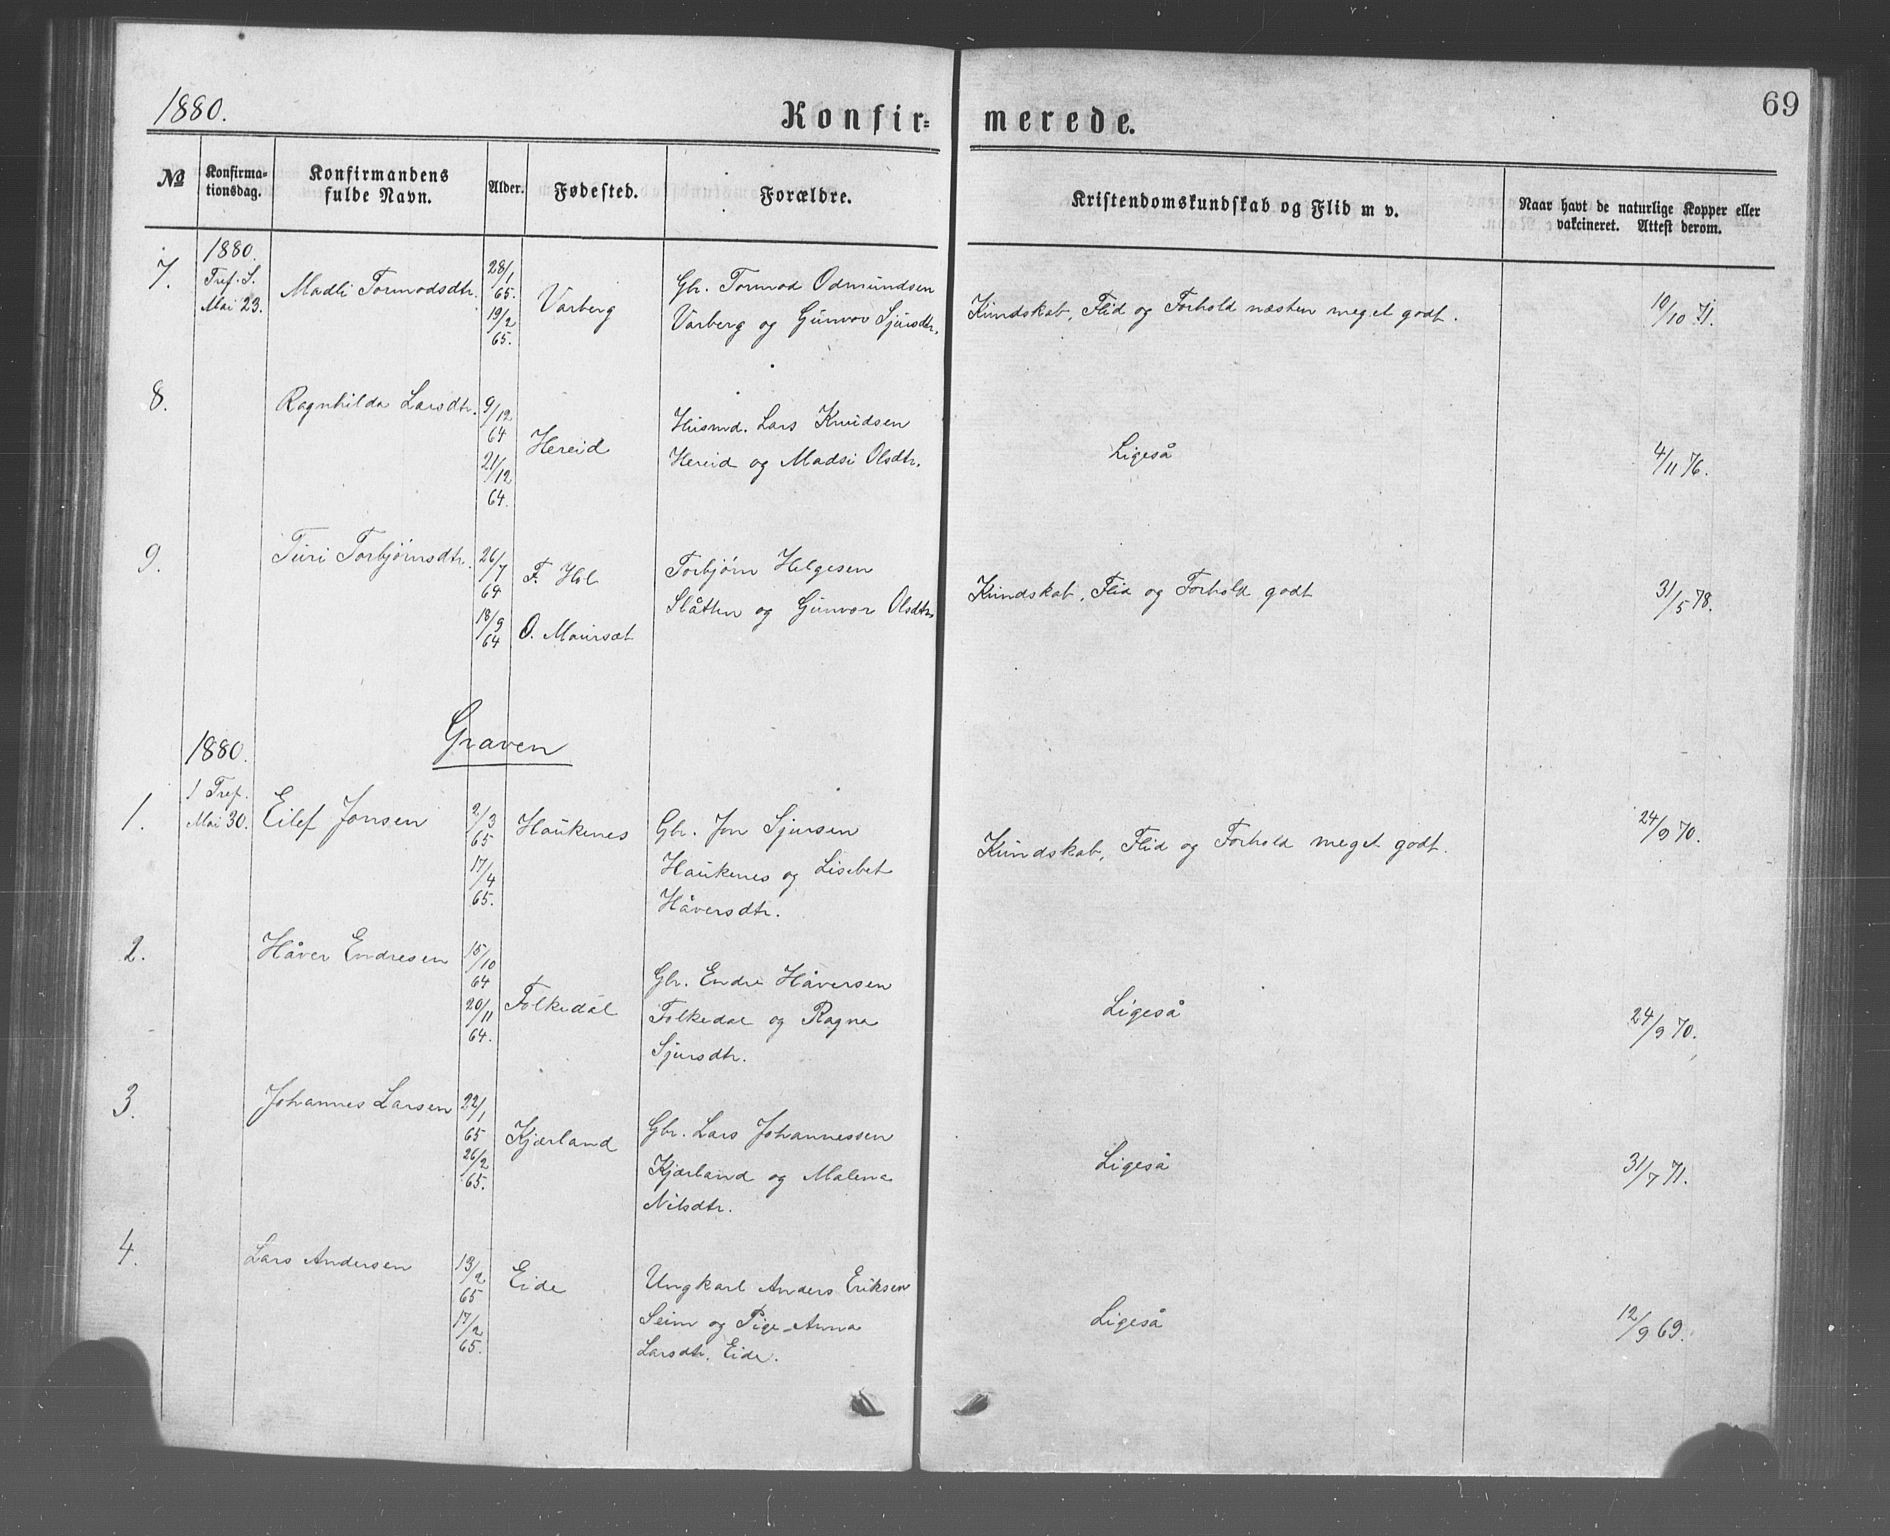 1880.
Konfirmerede.
69
No
Konfirmationsdag.
Konfirmandens fulde Navn.
Alder.
Fødested.
Forældre.
Kristendomskundskab og Flid m v.
Naar havt de naturlige Kopper eller vakcineret. Attest derom.
7.
1880.
Tref. S.
Mai 23.
Madli Tormodsdtr.
28/1
65.
19/2
65.
Varberg
Gbr. Tormod Odmundsen
Varberg og Gunvor Sjursdtr.
Kundskab, Flid og Forhold næsten meget godt.
10/10 71.
8.
Ragnhilda Larsdtr.
9/12
64
21/12
64.
Hereid
Husmd. Lars Knudsen
Hereid og Madsi Olsdtr.
Ligeså
4/11 76.
9.
Turi Torbjørnsdtr.
26/7
64
18/9
64
F. Hol
O. Maursæt
Torbjørn Helgesen
Slåtten og Gunvor Olsdtr.
Kundskab, Flid og Forhold godt
31/5 78.
Graven
1880.
1.
1 Tref.
Mai 30.
Eilef Jonsen
2/3
65
17/4
65.
Haukenes
Gbr. Jon Sjursen
Haukenes og Lisebet
Håversdtr.
Kundskab, Flid og Forhold meget godt.
24/9 70.
2.
Håver Endresen
15/10
64
20/11
64.
Folkedal
Gbr. Endre Håversen
Folkedal og Ragna
Sjursdtr.
Ligeså
24/9 70.
3.
Johannes Larsen
22/1
65
26/2
65.
Kjærland
Gbr. Lars Johannessen
Kjærland og Malena
Nilsdtr.
Ligeså
31/7 71.
4.
Lars Andersen
13/2
65
17/2
65.
Eide
Ungkarl Anders Eriksen
Seim og Pige Anna
Larsdtr. Eide.
Ligeså
12/9 69.